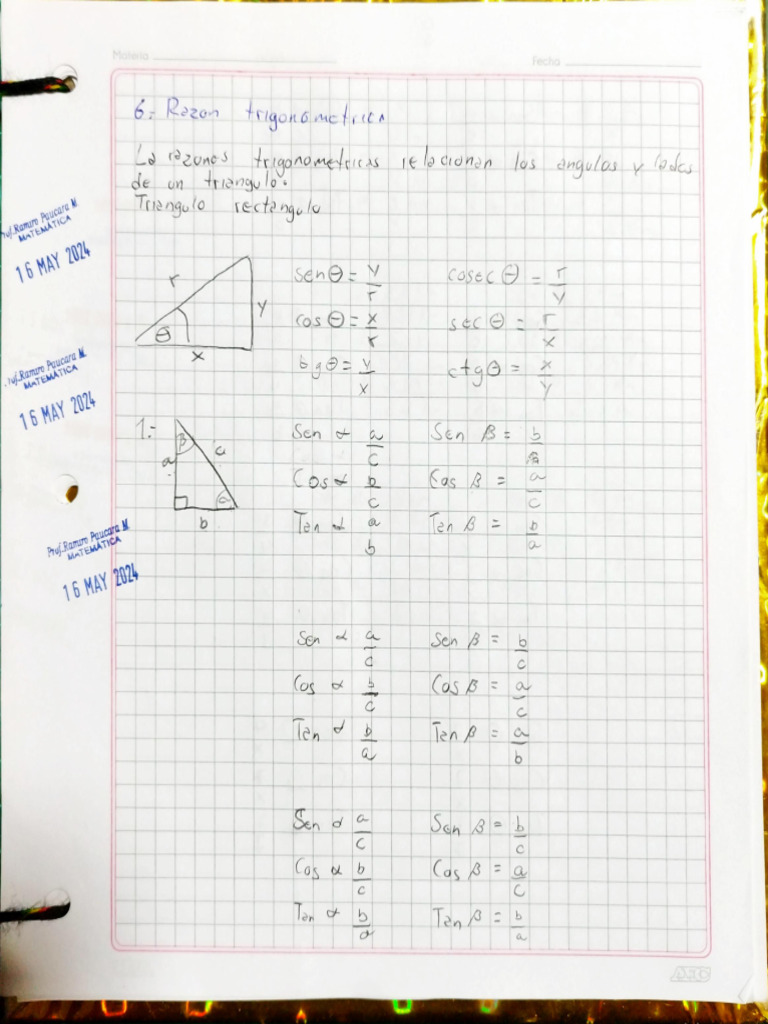 Materia
Fecha
6.- Razon trigonometrica
La razones trigonometricas relacionan los angulos y lados
de un triangulo.
Triangulo rectangulo
Prof. Ramiro Paucara M.
MATEMÁTICA
16 MAY 2024
r
y
θ
x
sen θ = y/r cosec θ = r/y
cos θ = x/r sec θ = r/x
tg θ = y/x ctg θ = x/y
Prof. Ramiro Paucara M.
MATEMÁTICA
16 MAY 2024
1.-
β
c
a
α
b
Sen α a/c Sen β = b/
Cos α b/c Cos β = a/c
Tan α a/b Tan β = b/a
Prof. Ramiro Paucara M.
MATEMÁTICA
16 MAY 2024
Sen α a/c Sen β = b/c
Cos α b/c Cos β = a/c
Tan α b/a Tan β = a/b
Sen α a/c Sen β = b/c
Cos α b/c Cos β = a/c
Tan α b/a Tan β = b/a